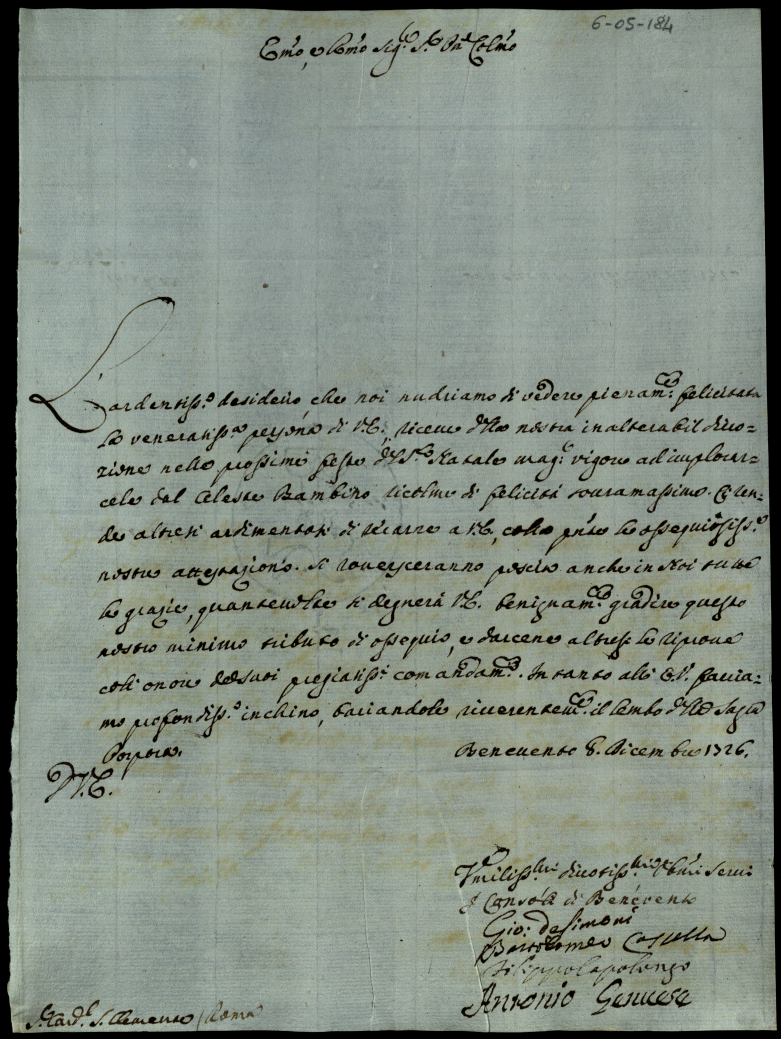 6-05-184
Em̃o, e Rm̃o Sig.re S.re Pn̄e Colm̃o
L'ardentiss.o desiderio che noi nudriamo di vedere pienam.te felicitata
la veneratiss.a persona di V.E., riceve dalla nostra inalterabil divo=
zione nelle prossime feste del S.to Natale mag.r vigore ad implorar=
cele dal Celeste Bambino ricolme di felicità
de altresì di recarne a V.E. colla pn̄te le ossequiosiss.e
nostre attestazioni. Si rovesceranno poscia anche in Noi tutte
le grazie, quantevolte si degnerà V.E. benignam.te gradire questo
nostro minimo tributo di ossequio, e darcene altresì le riprove
coll'onore de suoi pregiatiss.i comandam.ti. In tanto all'E.V. faccia=
mo profondiss.o inchino, baciandole riverentem.te il lembo della Sagra
Porpora. Benevento 8. Dicembre 1726.
D.V.E.
Vmiliss.mi divotiss.mi Obl̃mi Servi
I Consoli di Benevento
Gio: de Simone
Bartolomeo Capella
Filippo Capolongo
Antonio Genuese
S. Card.l S. Clemente / Roma